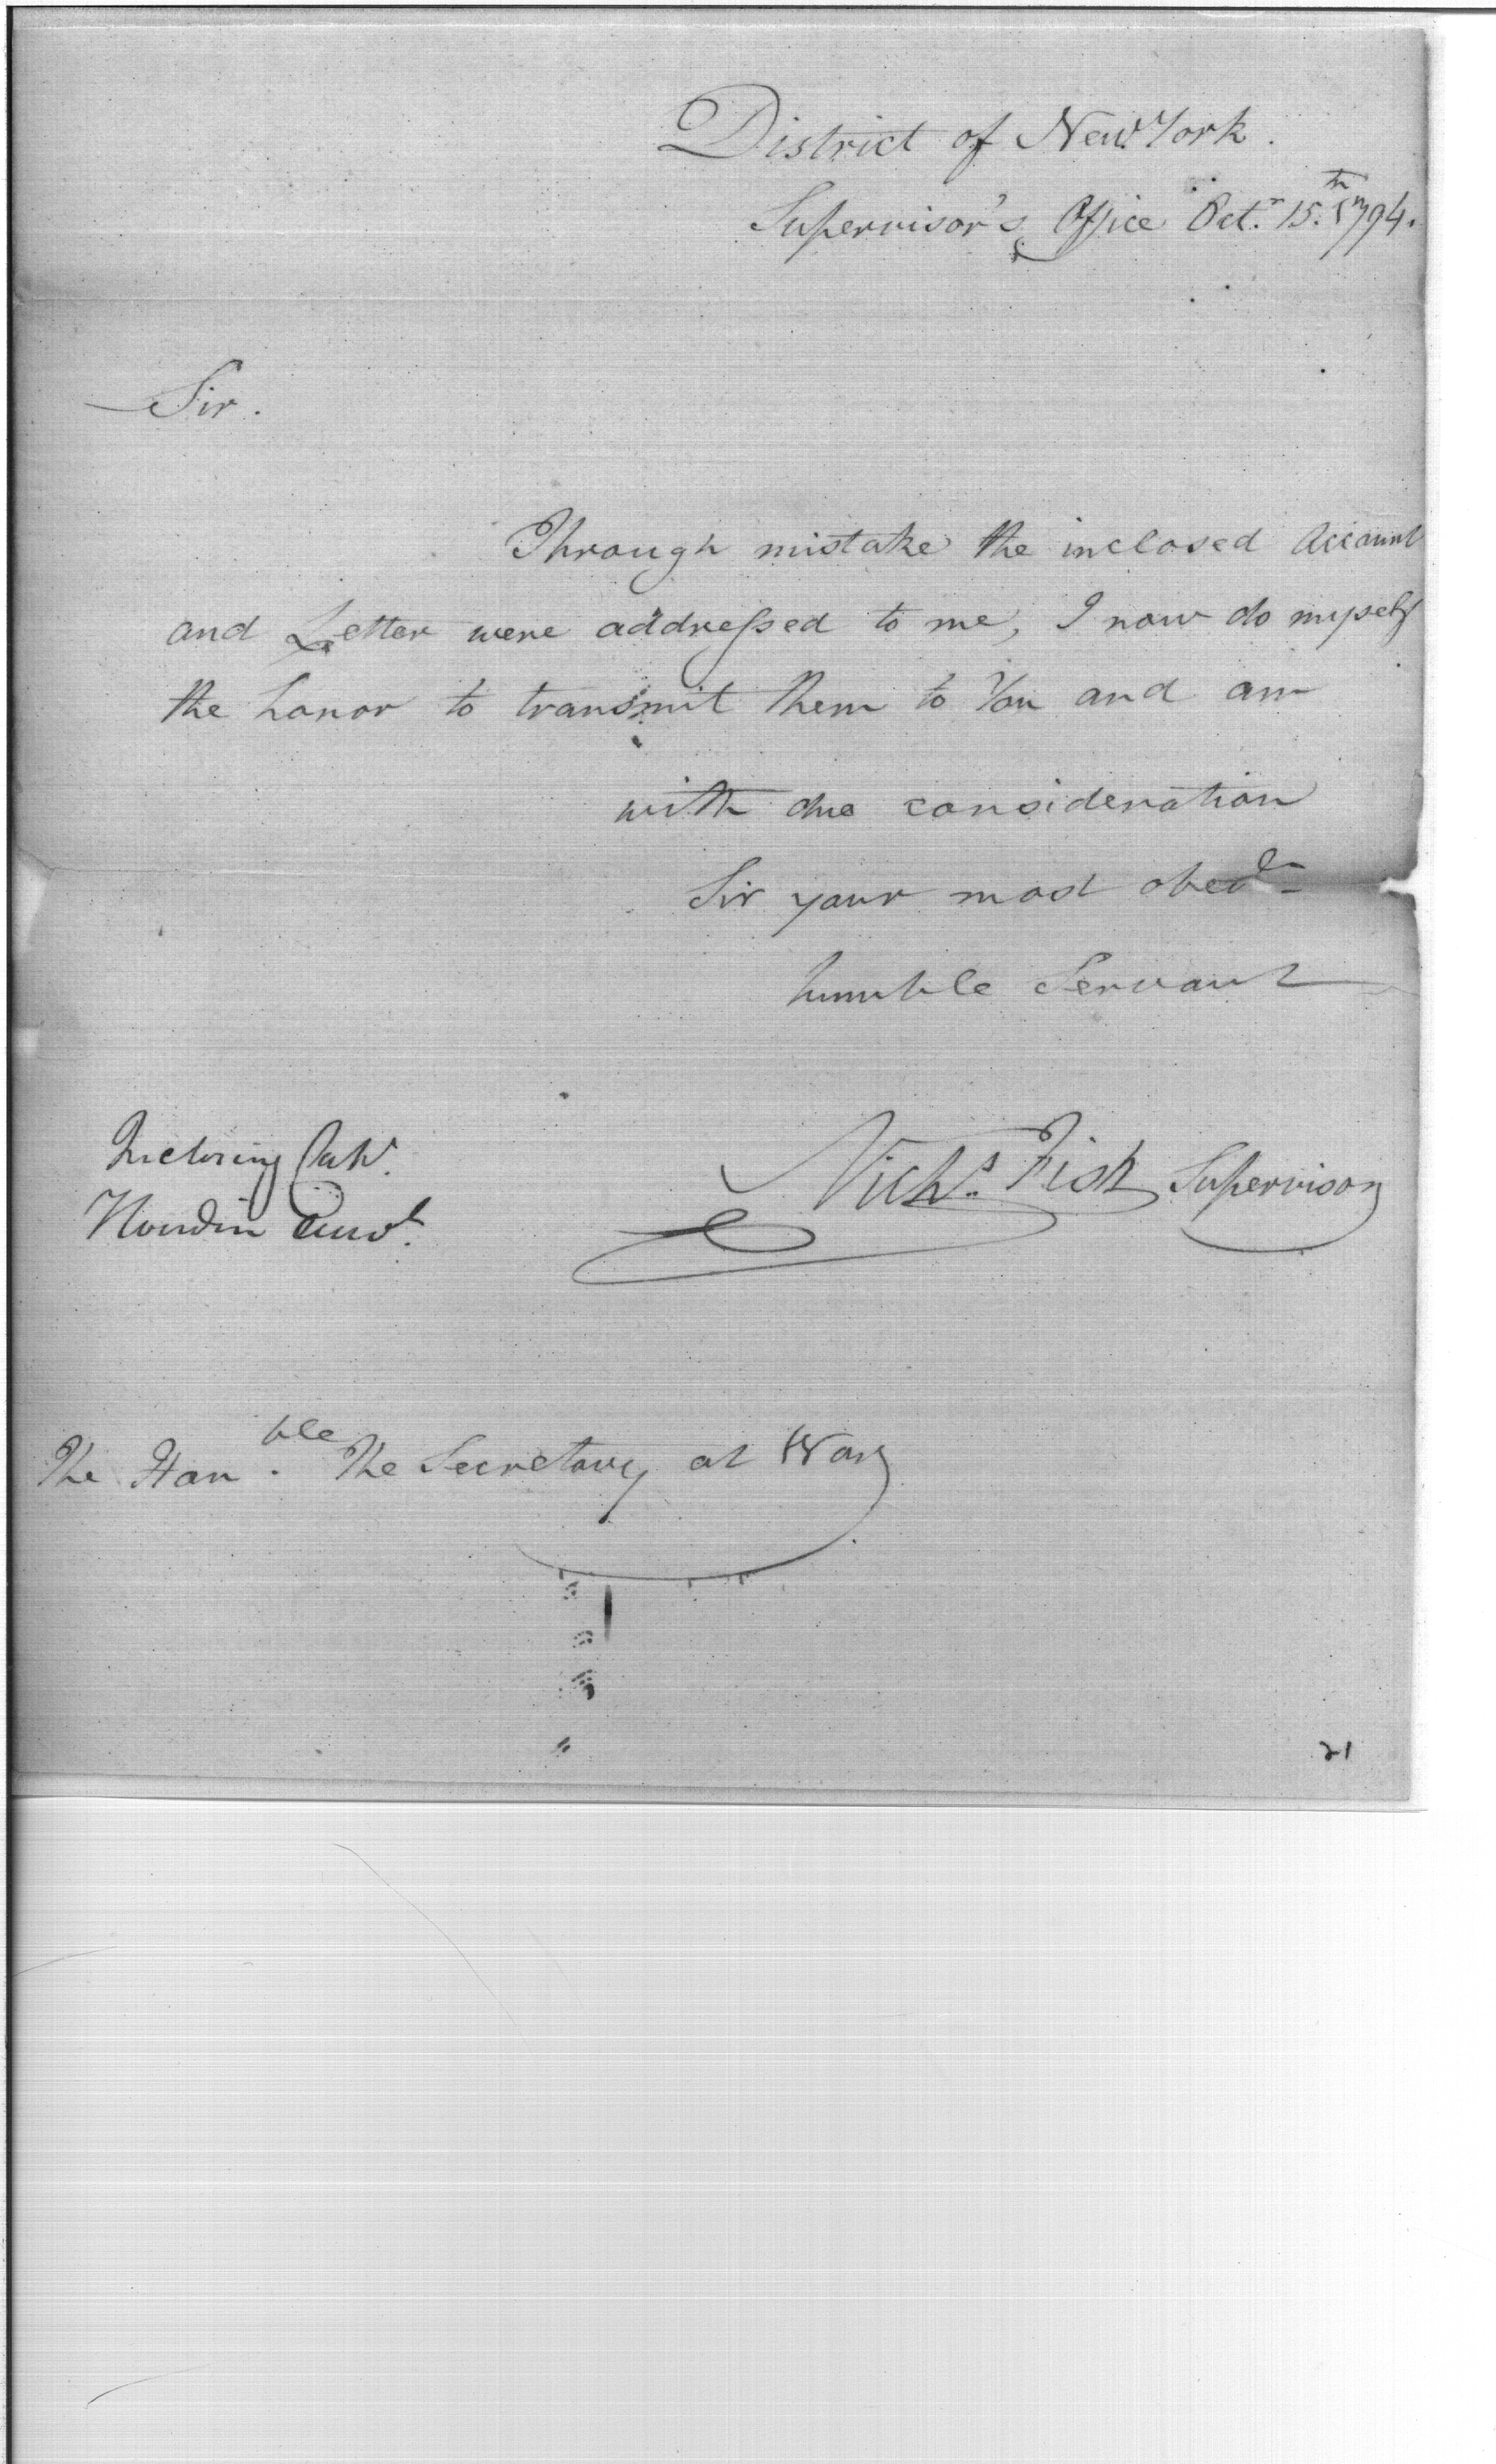 District of New York.
Supervisor's Office Oct.r 15.th 1794.
Sir.
Through mistake the inclosed Account
and Letter were addressed to me, I now do myself
the honor to transmit them to You and am
with due consideration
Sir your most obed.t
humble Servant
Inclosing Capt.
Houdin
Nich.s Fish Supervisor
The Hon.ble The Secretary at War
21